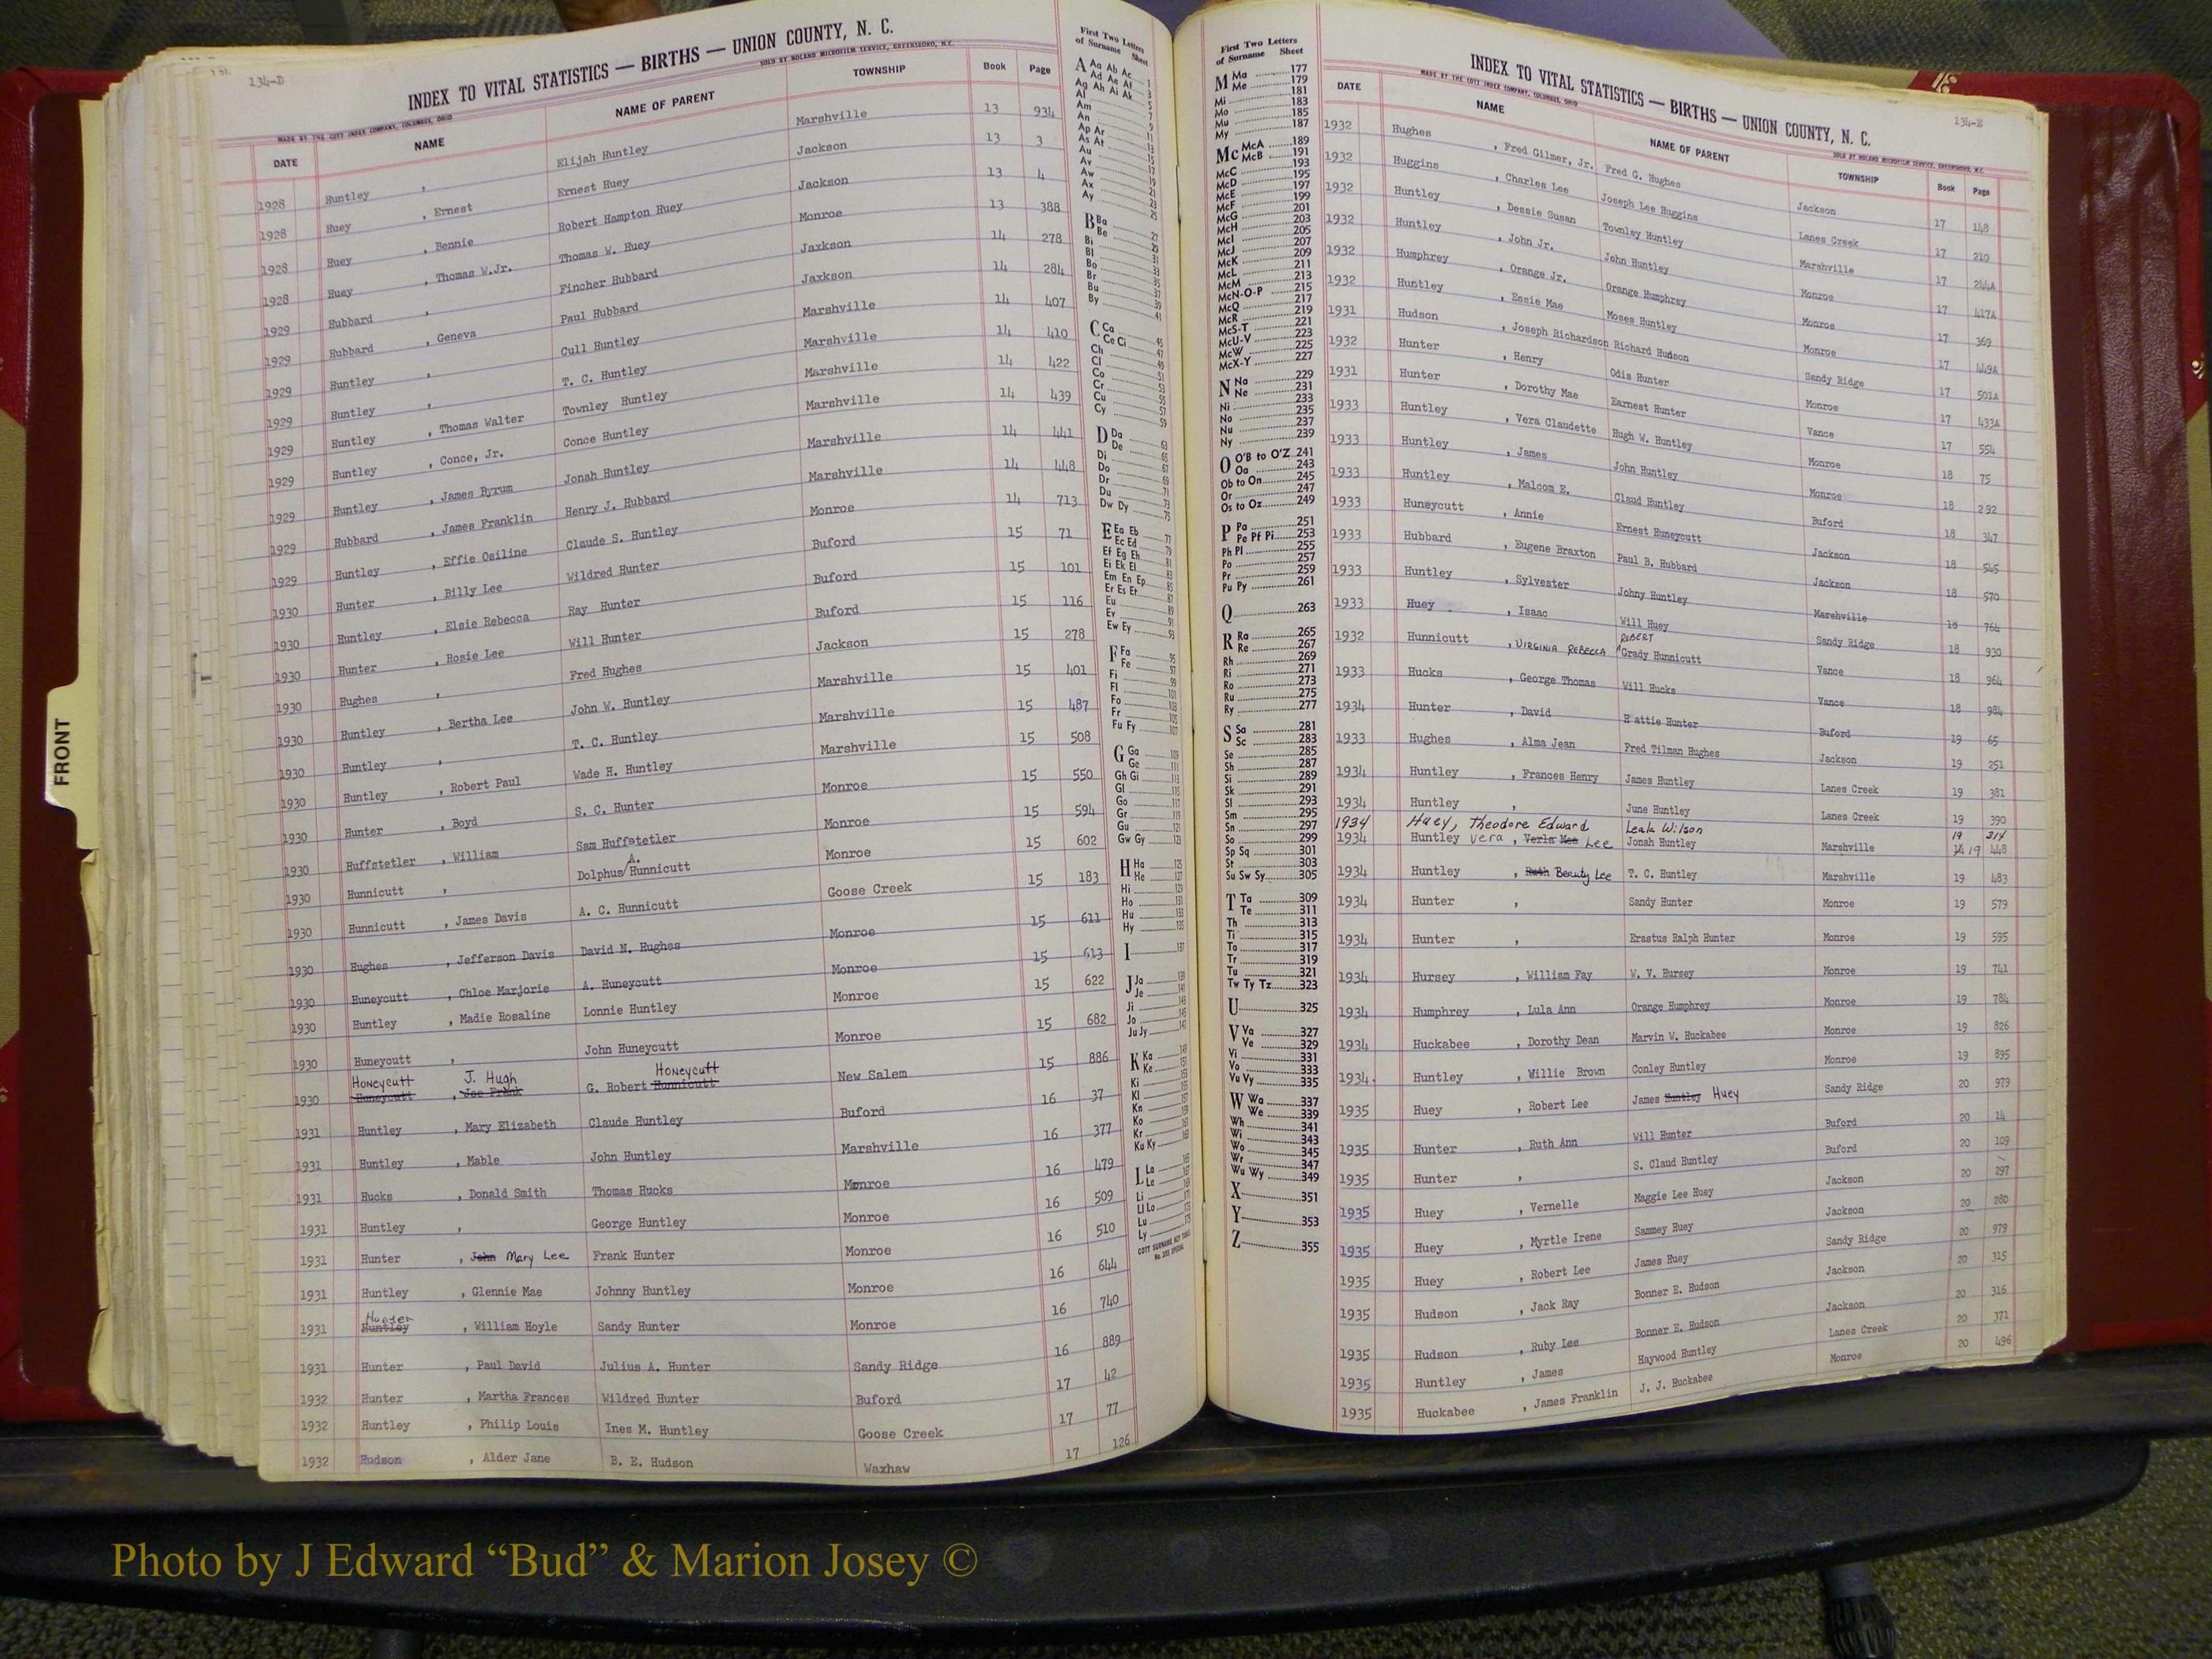 134-D
INDEX TO VITAL STATISTICS — BIRTHS — UNION COUNTY, N. C.
MADE BY THE COTT INDEX COMPANY, COLUMBUS, OHIO SOLD BY NOLAND MICROFILM SERVICE, GREENSBORO, N.C.
DATE NAME NAME OF PARENT TOWNSHIP Book Page
1928 Huntley , Elijah Huntley Marshville 13 934
1928 Huey , Ernest Ernest Huey Jackson 13 3
1928 Huey , Bennie Robert Hampton Huey Jackson 13 4
1928 Huey , Thomas W.Jr. Thomas W. Huey Monroe 13 388
1929 Hubbard , Fincher Hubbard Jaxkson 14 278
1929 Hubbard , Geneva Paul Hubbard Jaxkson 14 284
1929 Huntley , Cull Huntley Marshville 14 407
1929 Huntley , T. C. Huntley Marshville 14 410
1929 Huntley , Thomas Walter Townley Huntley Marshville 14 422
1929 Huntley , Conce, Jr. Conce Huntley Marshville 14 439
1929 Huntley , James Byrum Jonah Huntley Marshville 14 441
1929 Hubbard , James Franklin Henry J. Hubbard Marshville 14 448
1929 Huntley , Effie Osiline Claude S. Huntley Monroe 14 713
1930 Hunter , Billy Lee Wildred Hunter Buford 15 71
1930 Huntley , Elsie Rebecca Ray Hunter Buford 15 101
1930 Hunter , Rosie Lee Will Hunter Buford 15 116
1930 Hughes , Fred Hughes Jackson 15 278
1930 Huntley , Bertha Lee John W. Huntley Marshville 15 401
1930 Huntley , T. C. Huntley Marshville 15 487
1930 Huntley , Robert Paul Wade H. Huntley Marshville 15 508
1930 Hunter , Boyd S. C. Hunter Monroe 15 550
1930 Huffstetler , William Sam Huffstetler Monroe 15 594
1930 Hunnicutt , Dolphus A. Hunnicutt Monroe 15 602
1930 Hunnicutt , James Davis A. C. Hunnicutt Goose Creek 15 183
1930 Hughes , Jefferson Davis David N. Hughes Monroe 15 611
1930 Huneycutt , Chloe Marjorie A. Huneycutt Monroe 15 613
1930 Huntley , Madie Rosaline Lonnie Huntley Monroe 15 622
1930 Huneycutt , John Huneycutt Monroe 15 682
Honeycutt J. Hugh Honeycutt
1930 Huneycutt , Joe Frank G. Robert Hunnicutt New Salem 15 886
1931 Huntley , Mary Elizabeth Claude Huntley Buford 16 37
1931 Huntley , Mable John Huntley Marshville 16 377
1931 Hucks , Donald Smith Thomas Hucks Monroe 16 479
1931 Huntley , George Huntley Monroe 16 509
1931 Hunter , John Mary Lee Frank Hunter Monroe 16 510
1931 Huntley , Glennie Mae Johnny Huntley Monroe 16 644
Hunter
1931 Huntley , William Hoyle Sandy Hunter Monroe 16 740
1931 Hunter , Paul David Julius A. Hunter Sandy Ridge 16 889
1932 Hunter , Martha Frances Wildred Hunter Buford 17 42
1932 Huntley , Philip Louis Ines M. Huntley Goose Creek 17 77
1932 Hudson , Alder Jane B. E. Hudson Waxhaw 17 126
FRONT
First Two Letters
of Surname Sheet
A Aa Ab Ac 1
Ad Ae Af 3
Ag Ah Ai Ak 5
Al 7
Am 9
An 11
Ap Ar 13
As At 15
Au 17
Av 19
Aw 21
Ax 23
Ay 25
B Ba 27
Be 29
Bi 31
Bl 33
Bo 35
Br 37
Bu 39
By 41
C Ca 45
Ce Ci 47
Ch 49
Cl 51
Co 53
Cr 55
Cu 57
Cy 59
D Da 63
De 65
Di 67
Do 69
Dr 71
Du 73
Dw Dy 75
E Ea Eb 77
Ec Ed 79
Ef Eg Eh 81
Ei Ek El 83
Em En Ep 85
Er Es Et 87
Eu 89
Ev 91
Ew Ey 93
F Fa 95
Fe 97
Fi 99
Fl 101
Fo 103
Fr 105
Fu Fy 107
G Ga 109
Ge 111
Gh Gi 113
Gl 115
Go 117
Gr 119
Gu 121
Gw Gy 123
H Ha 125
He 127
Hi 129
Ho 131
Hu 133
Hy 135
I 137
J Ja 139
Je 141
Ji 143
Jo 145
Ju Jy 147
K Ka
Ke
Ki
Kl
Kn
Ko
Kr
Ku Ky
L La
Le
Li
Ll Lo
Lu
Ly
COTT SURNAME KEY TABLE
First Two Letters
of Surname Sheet
M Ma 177
Me 179
181
Mi 183
Mo 185
Mu 187
My
Mc McA 189
McB 191
McC 193
McD 195
McE 197
McF 199
McG 201
McH 203
McI 205
McJ 207
McK 209
McL 211
McM 213
McN-O-P 215
McQ 217
McR 219
McS-T 221
McU-V 223
McW 225
McX-Y 227
N Na 229
Ne 231
Ni 233
No 235
Nu 237
Ny 239
O O'B to O'Z 241
Oa 243
Ob to On 245
Or 247
Os to Oz 249
P Pa 251
Pe Pf Pi 253
Ph Pl 255
Po 257
Pr 259
Pu Py 261
Q 263
R Ra 265
Re 267
Rh 269
Ri 271
Ro 273
Ru 275
Ry 277
S Sa 281
Sc 283
Se 285
Sh 287
Si 289
Sk 291
Sl 293
Sm 295
Sn 297
So 299
Sp Sq 301
St 303
Su Sw Sy 305
T Ta 309
Te 311
Th 313
Ti 315
To 317
Tr 319
Tu 321
Tw Ty Tz 323
U 325
V Va 327
Ve 329
Vi 331
Vo 333
Vu Vy 335
W Wa 337
We 339
Wh 341
Wi 343
Wo 345
Wr 347
Wu Wy 349
X 351
Y 353
Z 355
134-E
INDEX TO VITAL STATISTICS — BIRTHS — UNION COUNTY, N. C.
MADE BY THE COTT INDEX COMPANY, COLUMBUS, OHIO SOLD BY NOLAND MICROFILM SERVICE, GREENSBORO, N.C.
DATE NAME NAME OF PARENT TOWNSHIP Book Page
1932 Hughes , Fred Gilmer, Jr. Fred G. Hughes Jackson 17 148
1932 Huggins , Charles Lee Joseph Lee Huggins Lanes Creek 17 210
1932 Huntley , Dessie Susan Townley Huntley Marshville 17 244A
1932 Huntley , John Jr. John Huntley Monroe 17 417A
1932 Humphrey , Orange Jr. Orange Humphrey Monroe 17 369
1932 Huntley , Essie Mae Moses Huntley Monroe 17 449A
1931 Hudson , Joseph Richardson Richard Hudson Sandy Ridge 17 501A
1932 Hunter , Henry Odis Hunter Monroe 17 433A
1931 Hunter , Dorothy Mae Earnest Hunter Vance 17 554
1933 Huntley , Vera Claudette Hugh W. Huntley Monroe 18 75
1933 Huntley , James John Huntley Monroe 18 292
1933 Huntley , Malcom E. Claud Huntley Buford 18 347
1933 Huneycutt , Annie Ernest Huneycutt Jackson 18 545
1933 Hubbard , Eugene Braxton Paul B. Hubbard Jackson 18 570
1933 Huntley , Sylvester Johny Huntley Marshville 18 764
1933 Huey , Isaac Will Huey Sandy Ridge 18 930
ROBERT
1932 Hunnicutt , VIRGINIA REBECCA Grady Hunnicutt Vance 18 964
1933 Hucks , George Thomas Will Hucks Vance 18 984
1934 Hunter , David Hattie Hunter Buford 19 65
1933 Hughes , Alma Jean Fred Tilman Hughes Jackson 19 251
1934 Huntley , Frances Henry James Huntley Lanes Creek 19 381
1934 Huntley , June Huntley Lanes Creek 19 390
1934 Huey, Theodore Edward Leala Wilson 19 314
1934 Huntley Vera , Verla Mae Lee Jonah Huntley Marshville 14 19 448
1934 Huntley , Ruth Beauty Lee T. C. Huntley Marshville 19 483
1934 Hunter , Sandy Hunter Monroe 19 579
1934 Hunter , Erastus Ralph Hunter Monroe 19 595
1934 Hursey , William Fay W. V. Hursey Monroe 19 741
1934 Humphrey , Lula Ann Orange Humphrey Monroe 19 784
1934 Huckabee , Dorothy Dean Marvin W. Huckabee Monroe 19 826
1934. Huntley , Willie Brown Conley Huntley Monroe 19 895
1935 Huey , Robert Lee James Huntley Huey Sandy Ridge 20 979
1935 Hunter , Ruth Ann Will Hunter Buford 20 14
1935 Hunter , S. Claud Huntley Buford 20 109
1935 Huey , Vernelle Maggie Lee Huey Jackson 20 297
1935 Huey , Myrtle Irene Sammey Huey Jackson 20 280
1935 Huey , Robert Lee James Huey Sandy Ridge 20 979
1935 Hudson , Jack Ray Bonner E. Hudson Jackson 20 315
1935 Hudson , Ruby Lee Bonner E. Hudson Jackson 20 316
1935 Huntley , James Haywood Huntley Lanes Creek 20 371
1935 Huckabee , James Franklin J. J. Huckabee Monroe 20 496
Photo by J Edward “Bud” & Marion Josey ©